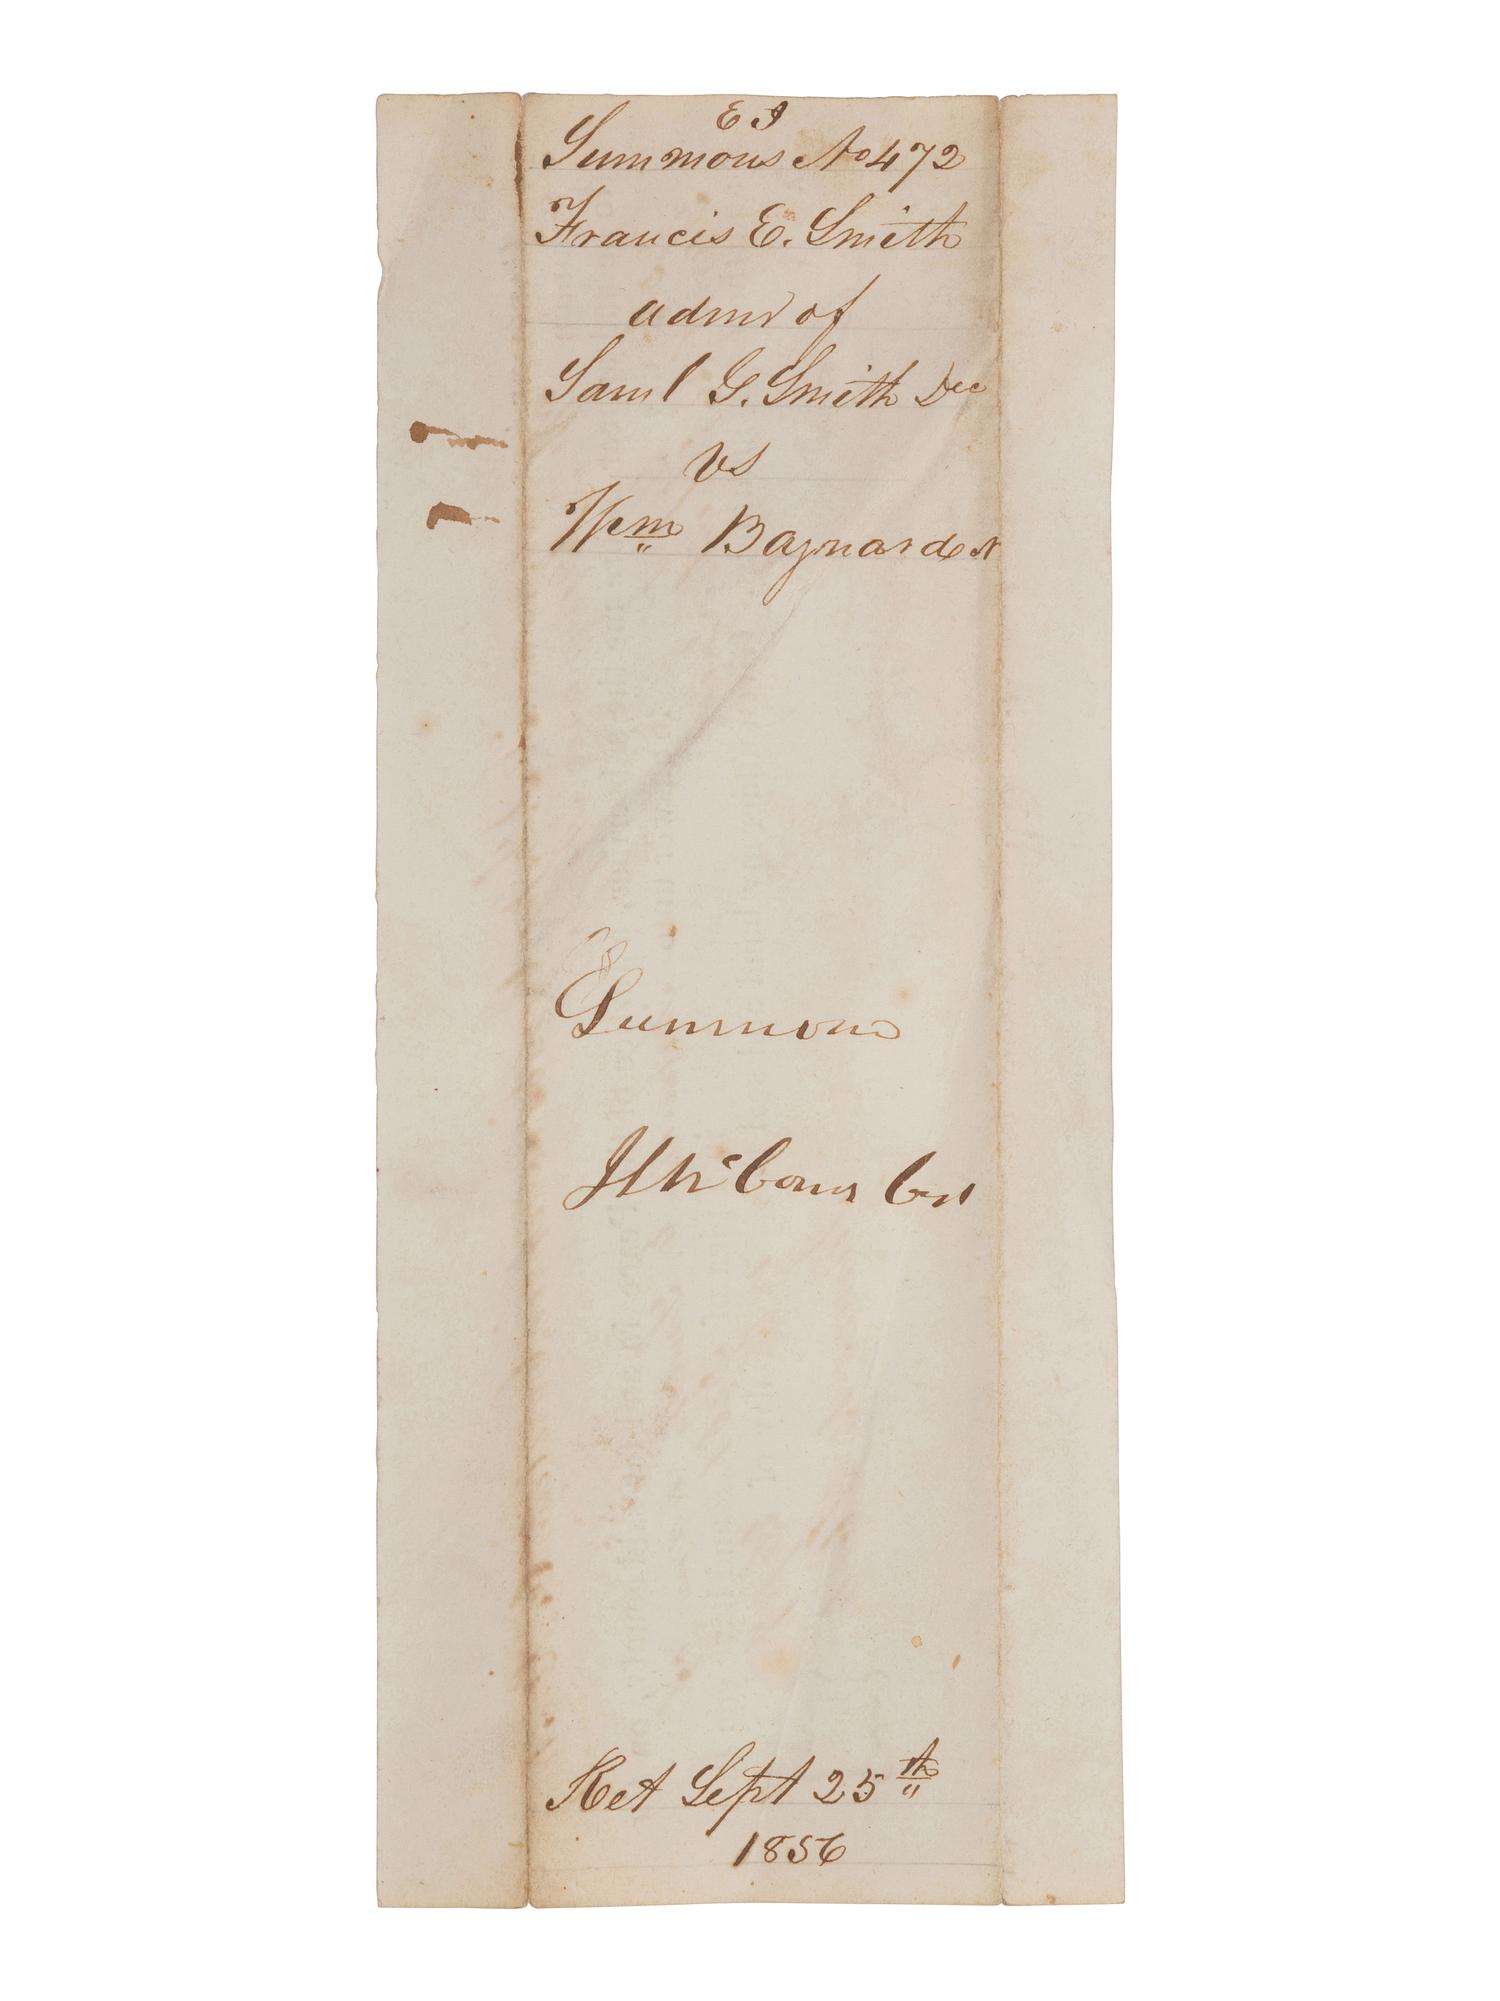 E I
Summons No 472
Francis E. Smith
admr of
Saml G. Smith Dec
vs
Wm Baynard
Summons
Ret Sept 25th
1856